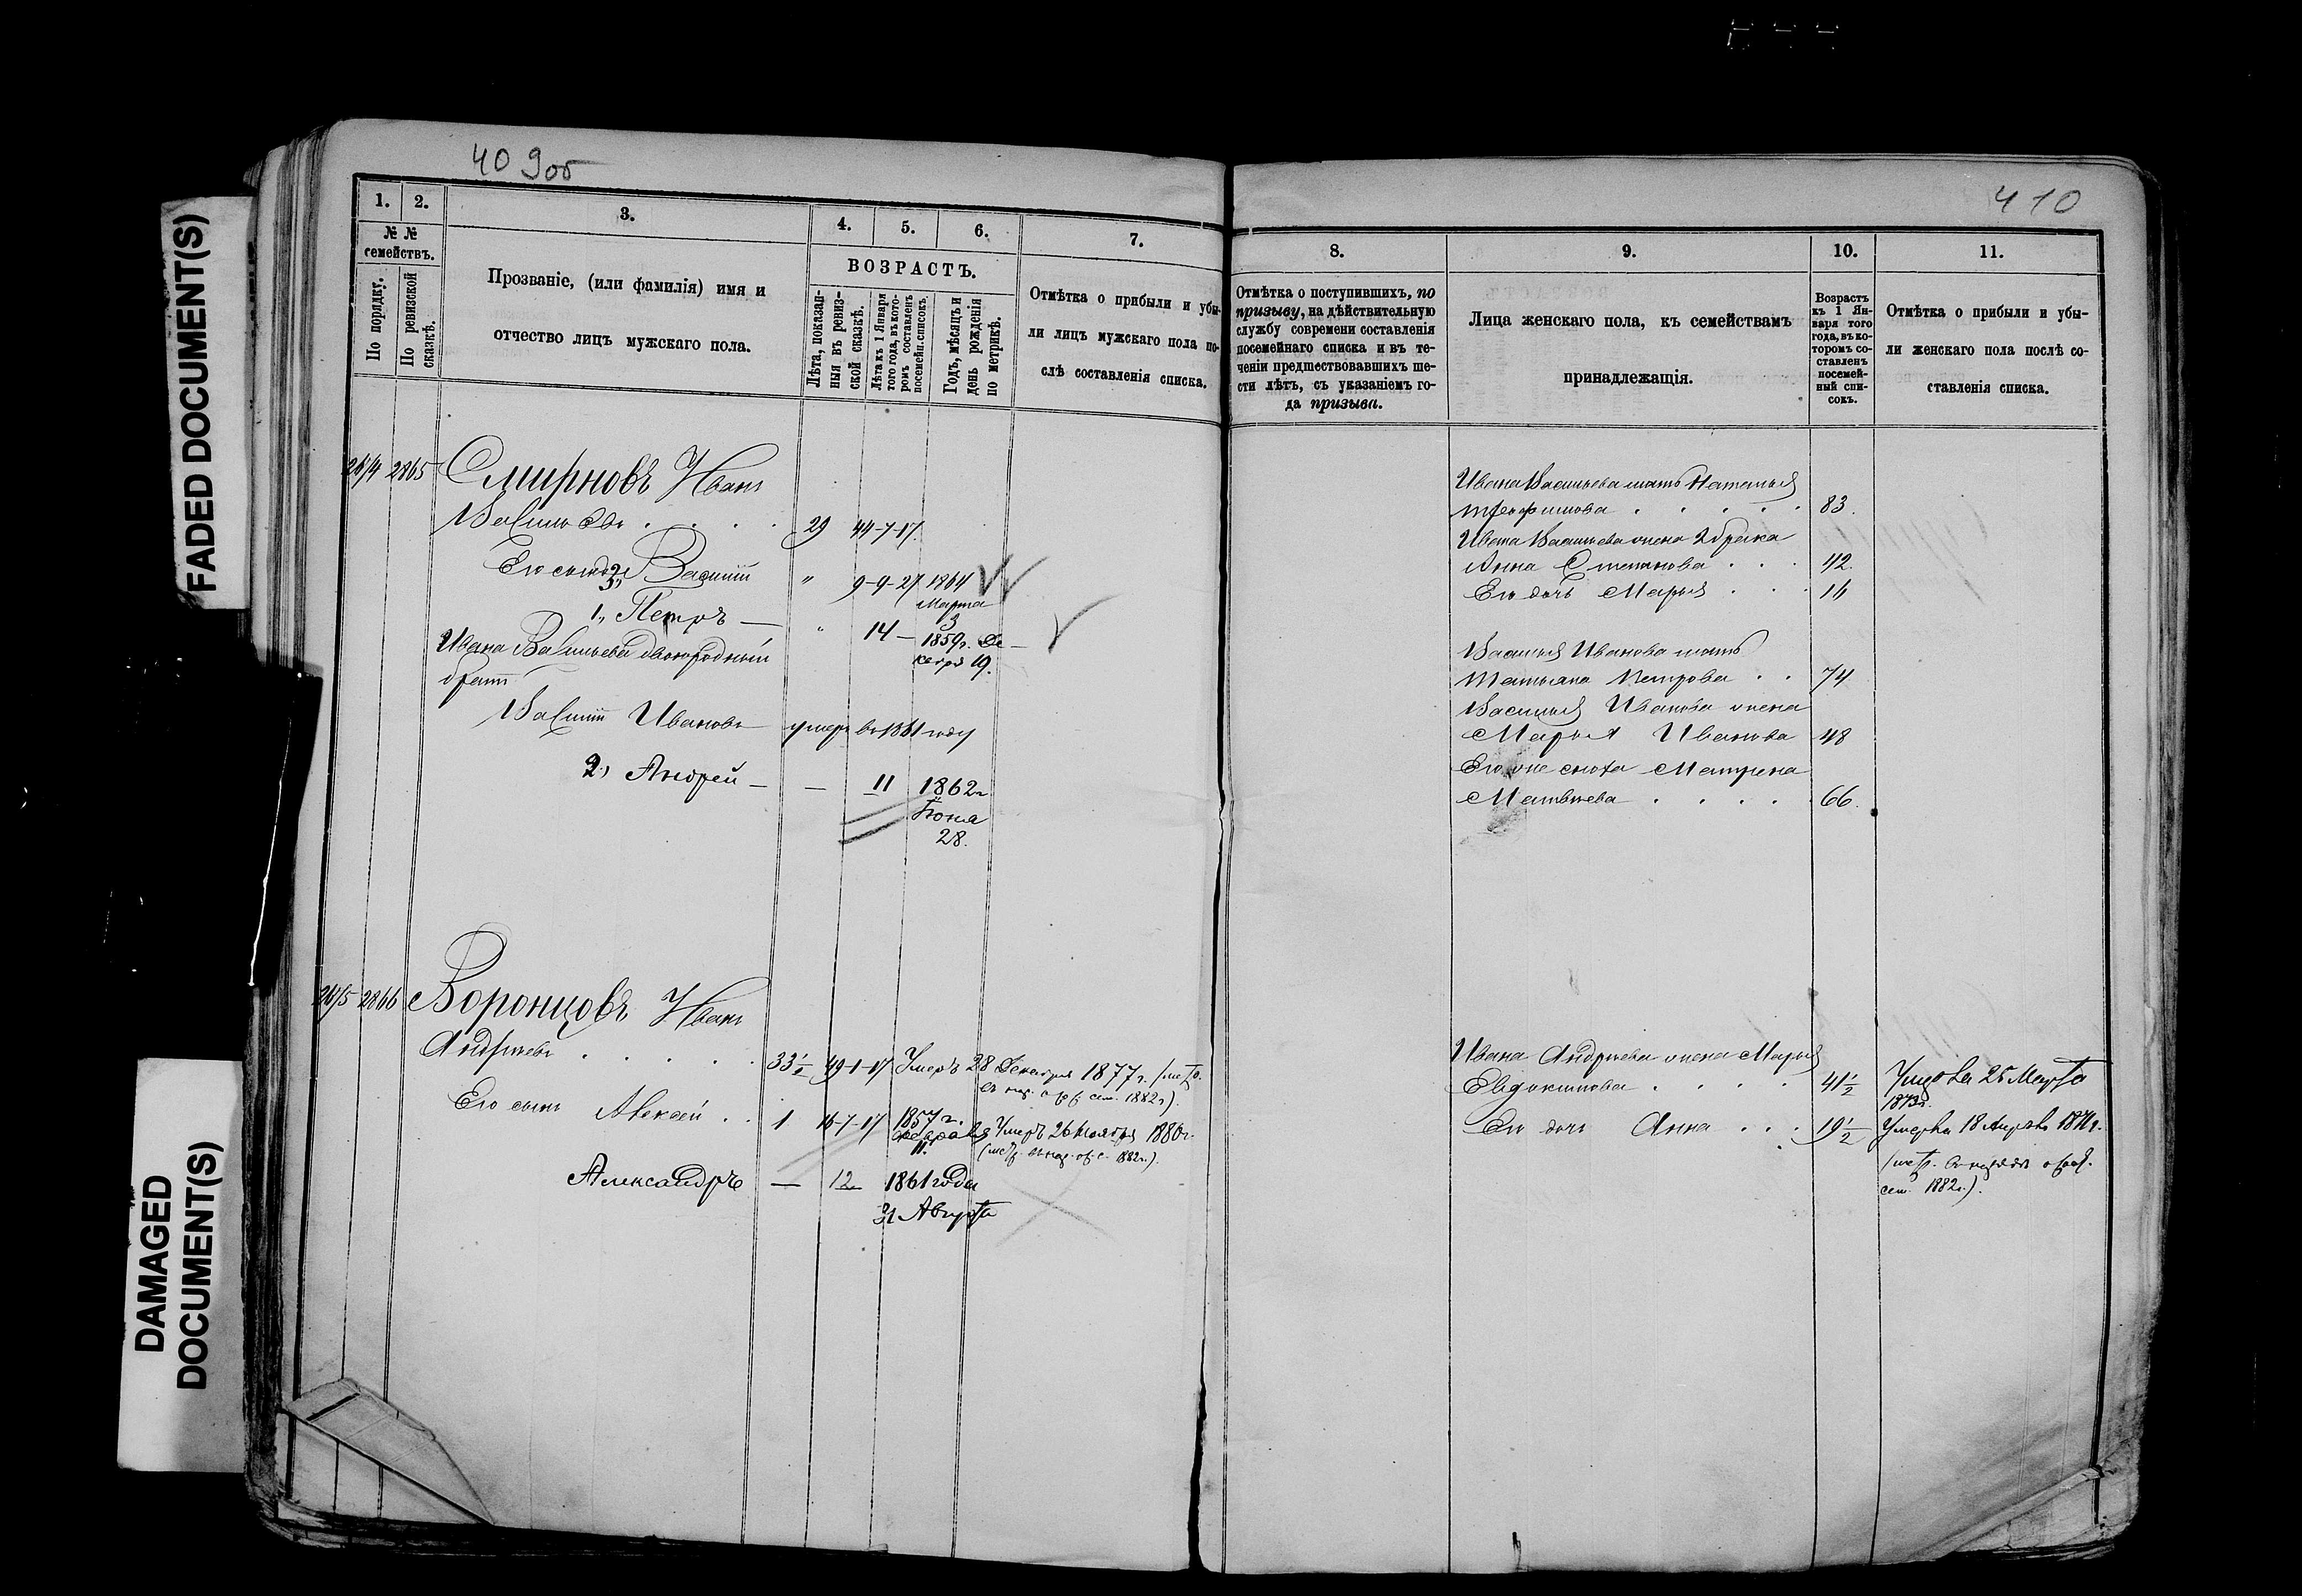 409об
410
FADED DOCUMENT(S)
DAMAGED
DOCUMENT(S)
1.
2.
3.
4.
5.
6.
7.
№ №
семействъ.
По порядку.
По ревизской
сказкѣ.
Прозваніе, (или фамилія) имя и
отчество лицъ мужскаго пола.
ВОЗРАСТЪ.
Лѣта, показан-
ныя въ ревиз-
ской сказкѣ.
Лѣта къ 1 Января
того года, въ кото-
ромъ составленъ
посемейн. списокъ.
Годъ, мѣсяцъ и
день рожденія
по метрикѣ.
Отмѣтка о прибыли и убы-
ли лицъ мужскаго пола по-
слѣ составленія списка.
2865
Смирновъ Иванъ
Васильевъ
29 44-7-17
Его сыновья 3, Василій
" 9-9-27 1864
Марта
3
1, Петръ —
" 14 — 1859г. Де-
кабря 19.
Ивана Васильева двоюродный
братъ
Василій Ивановъ умеръ въ 1861 году
2, Андрей — — 11 1862г
Іюня
28.
2866
Воронцовъ Иванъ
Андреевъ
33 1/2 49-1-17 Умеръ 28 Декабря 1877г.
1882г).
Его сынъ Алексей
1 16-7-17 1857г.
Февраля
11.
Умеръ 26 Ноября 1880г.
1882г.).
Александръ — 12 1861 года
31 Августа
8.
9.
10.
11.
Отмѣтка о поступившихъ, по
призыву, на дѣйствительную
службу современи составленія
посемейнаго списка и въ те-
ченіи предшествовавшихъ ше-
сти лѣтъ, съ указаніемъ го-
да призыва.
Лица женскаго пола, къ семействамъ
принадлежащія.
Возрастъ
къ 1 Ян-
варя того
года, въ ко-
торомъ со-
ставленъ
посемей-
ный спи-
сокъ.
Отмѣтка о прибыли и убы-
ли женскаго пола послѣ со-
ставленія списка.
Ивана Васильева мать Наталья
Трофимова 83.
Ивана Васильева жена 2 брака
Анна Степанова 42.
Его дочь Марья 16
Василья Иванова мать
Татьяна Петрова 74
Василья Иванова жена
Марья Иванова 48
Его же сноха Матрена
Матвѣева 66.
Ивана Андреева жена Марья
Евдокимова 41 1/2
25 Марта
Его дочь Анна 19 1/2
Умерла 18 Апрѣля
1882г.).